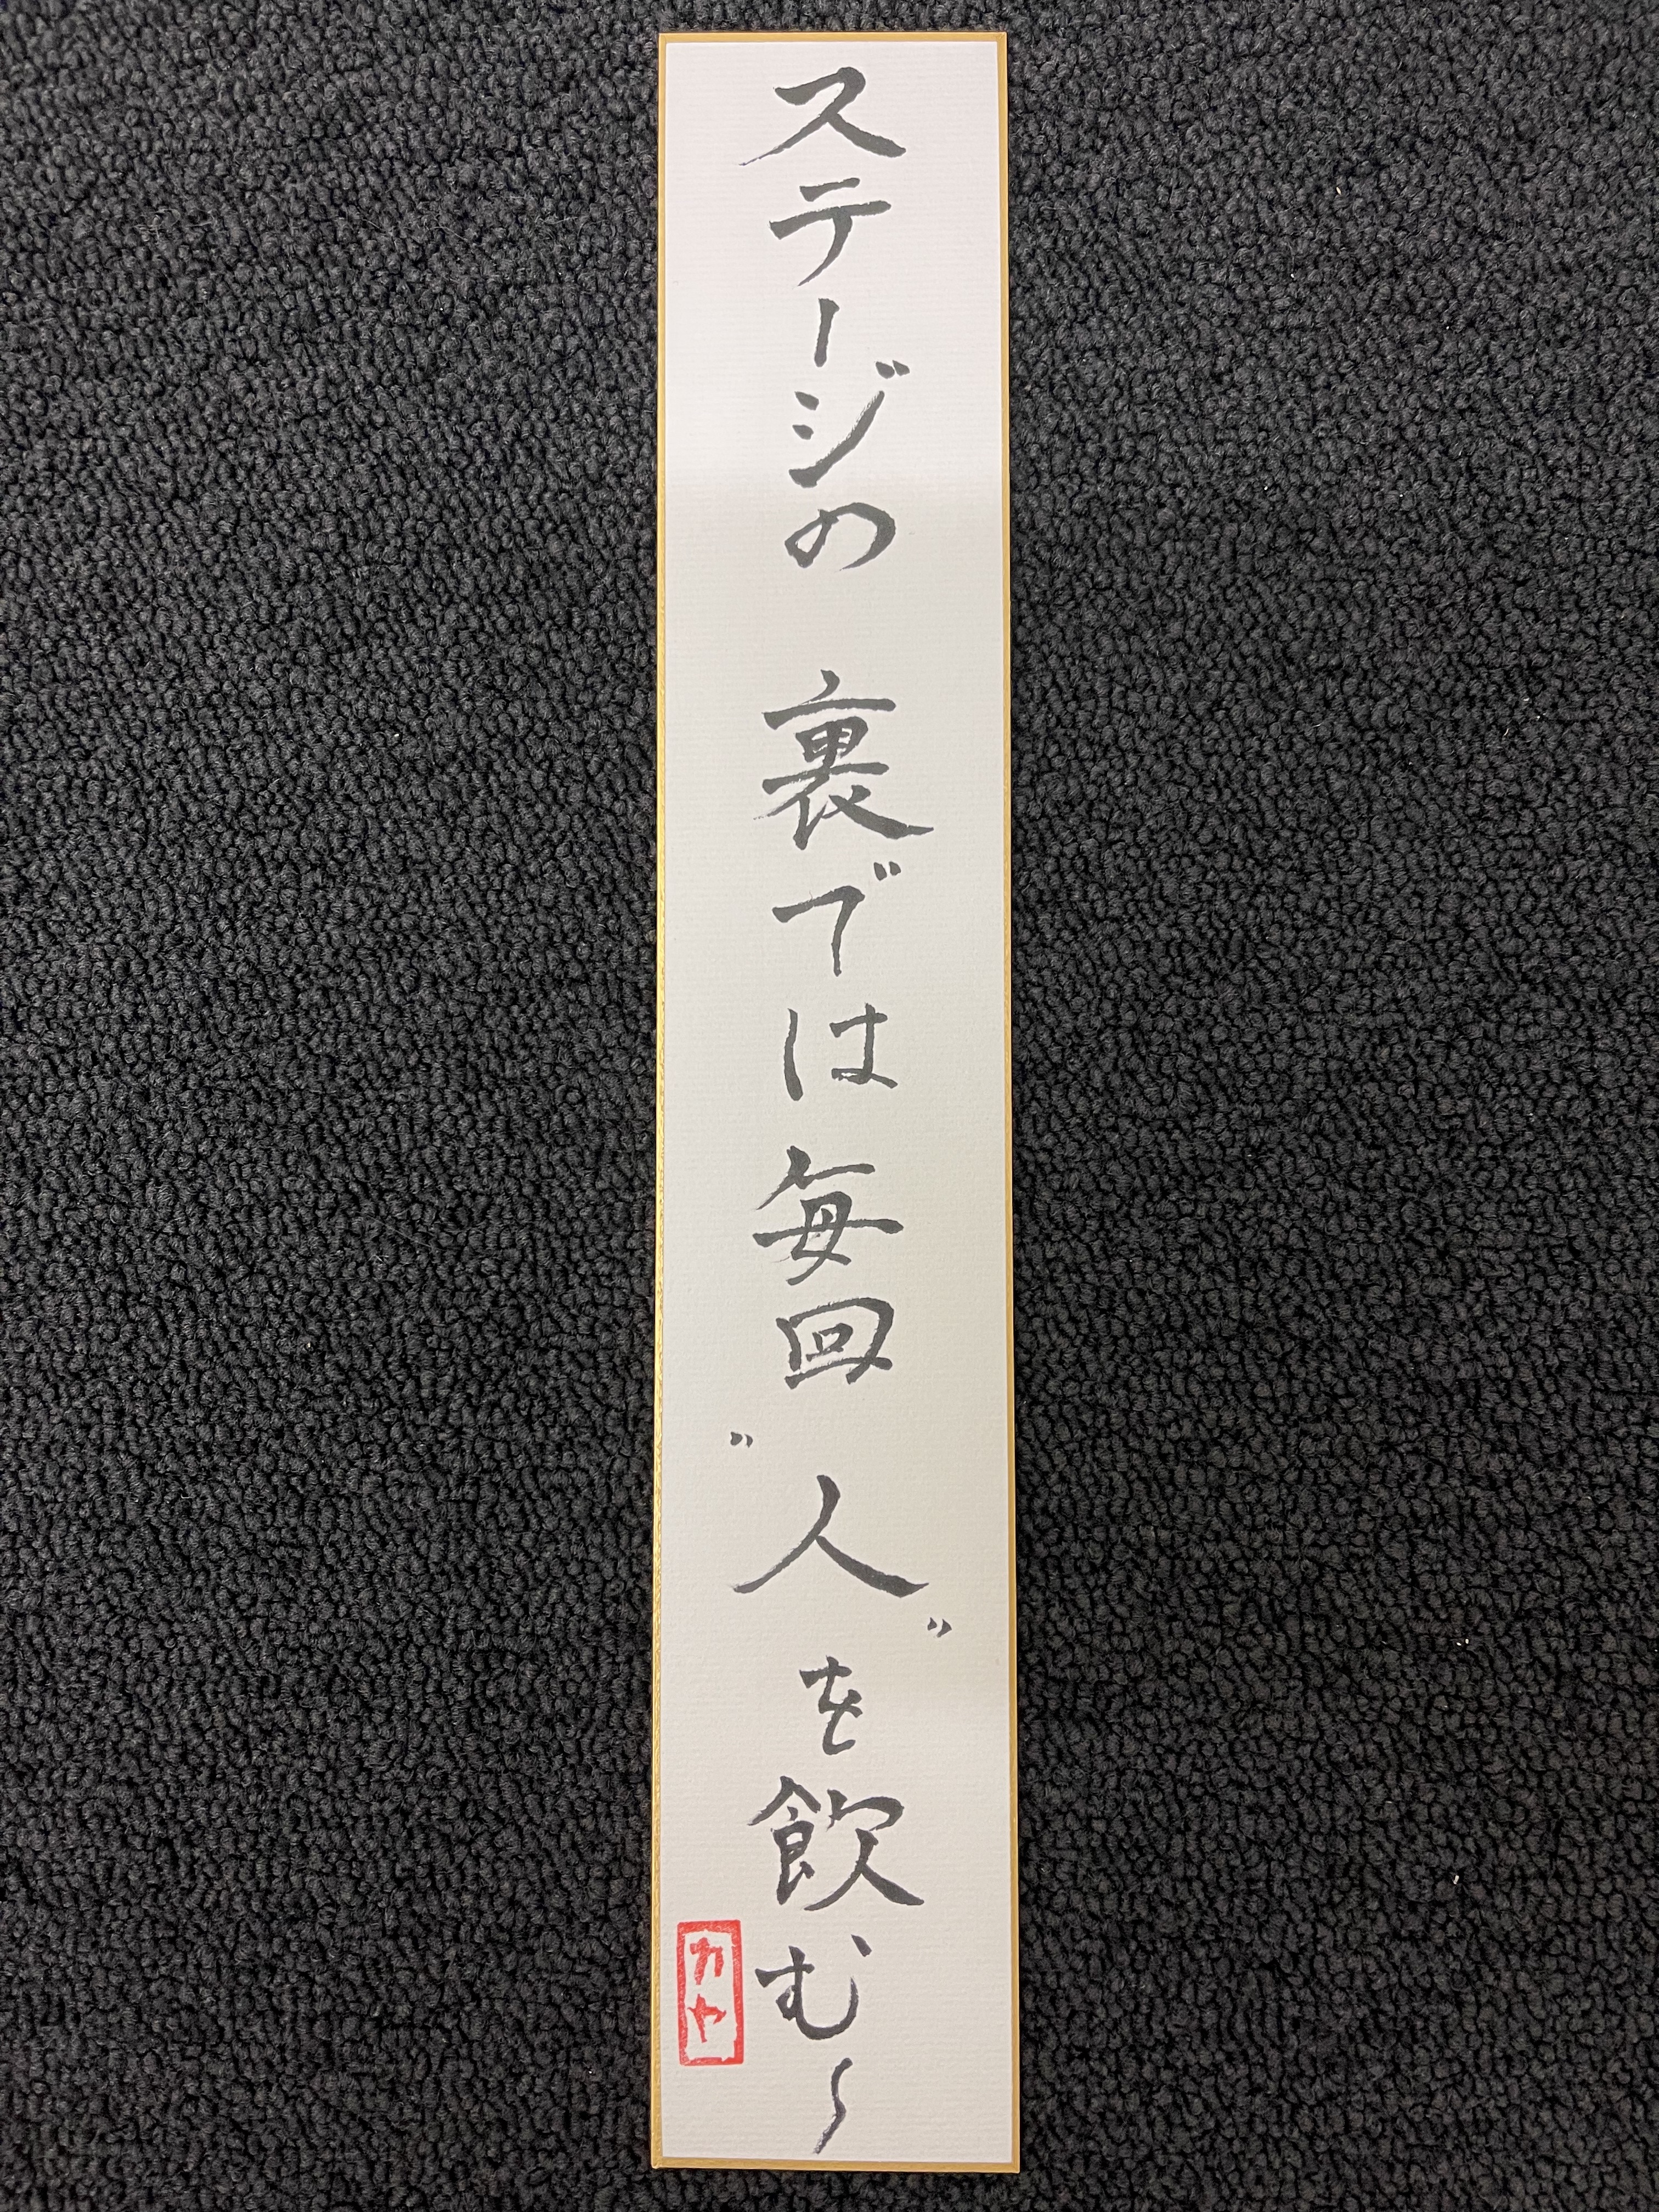 ステージの 裏では毎回〝人〟を飲む〜
カヤ